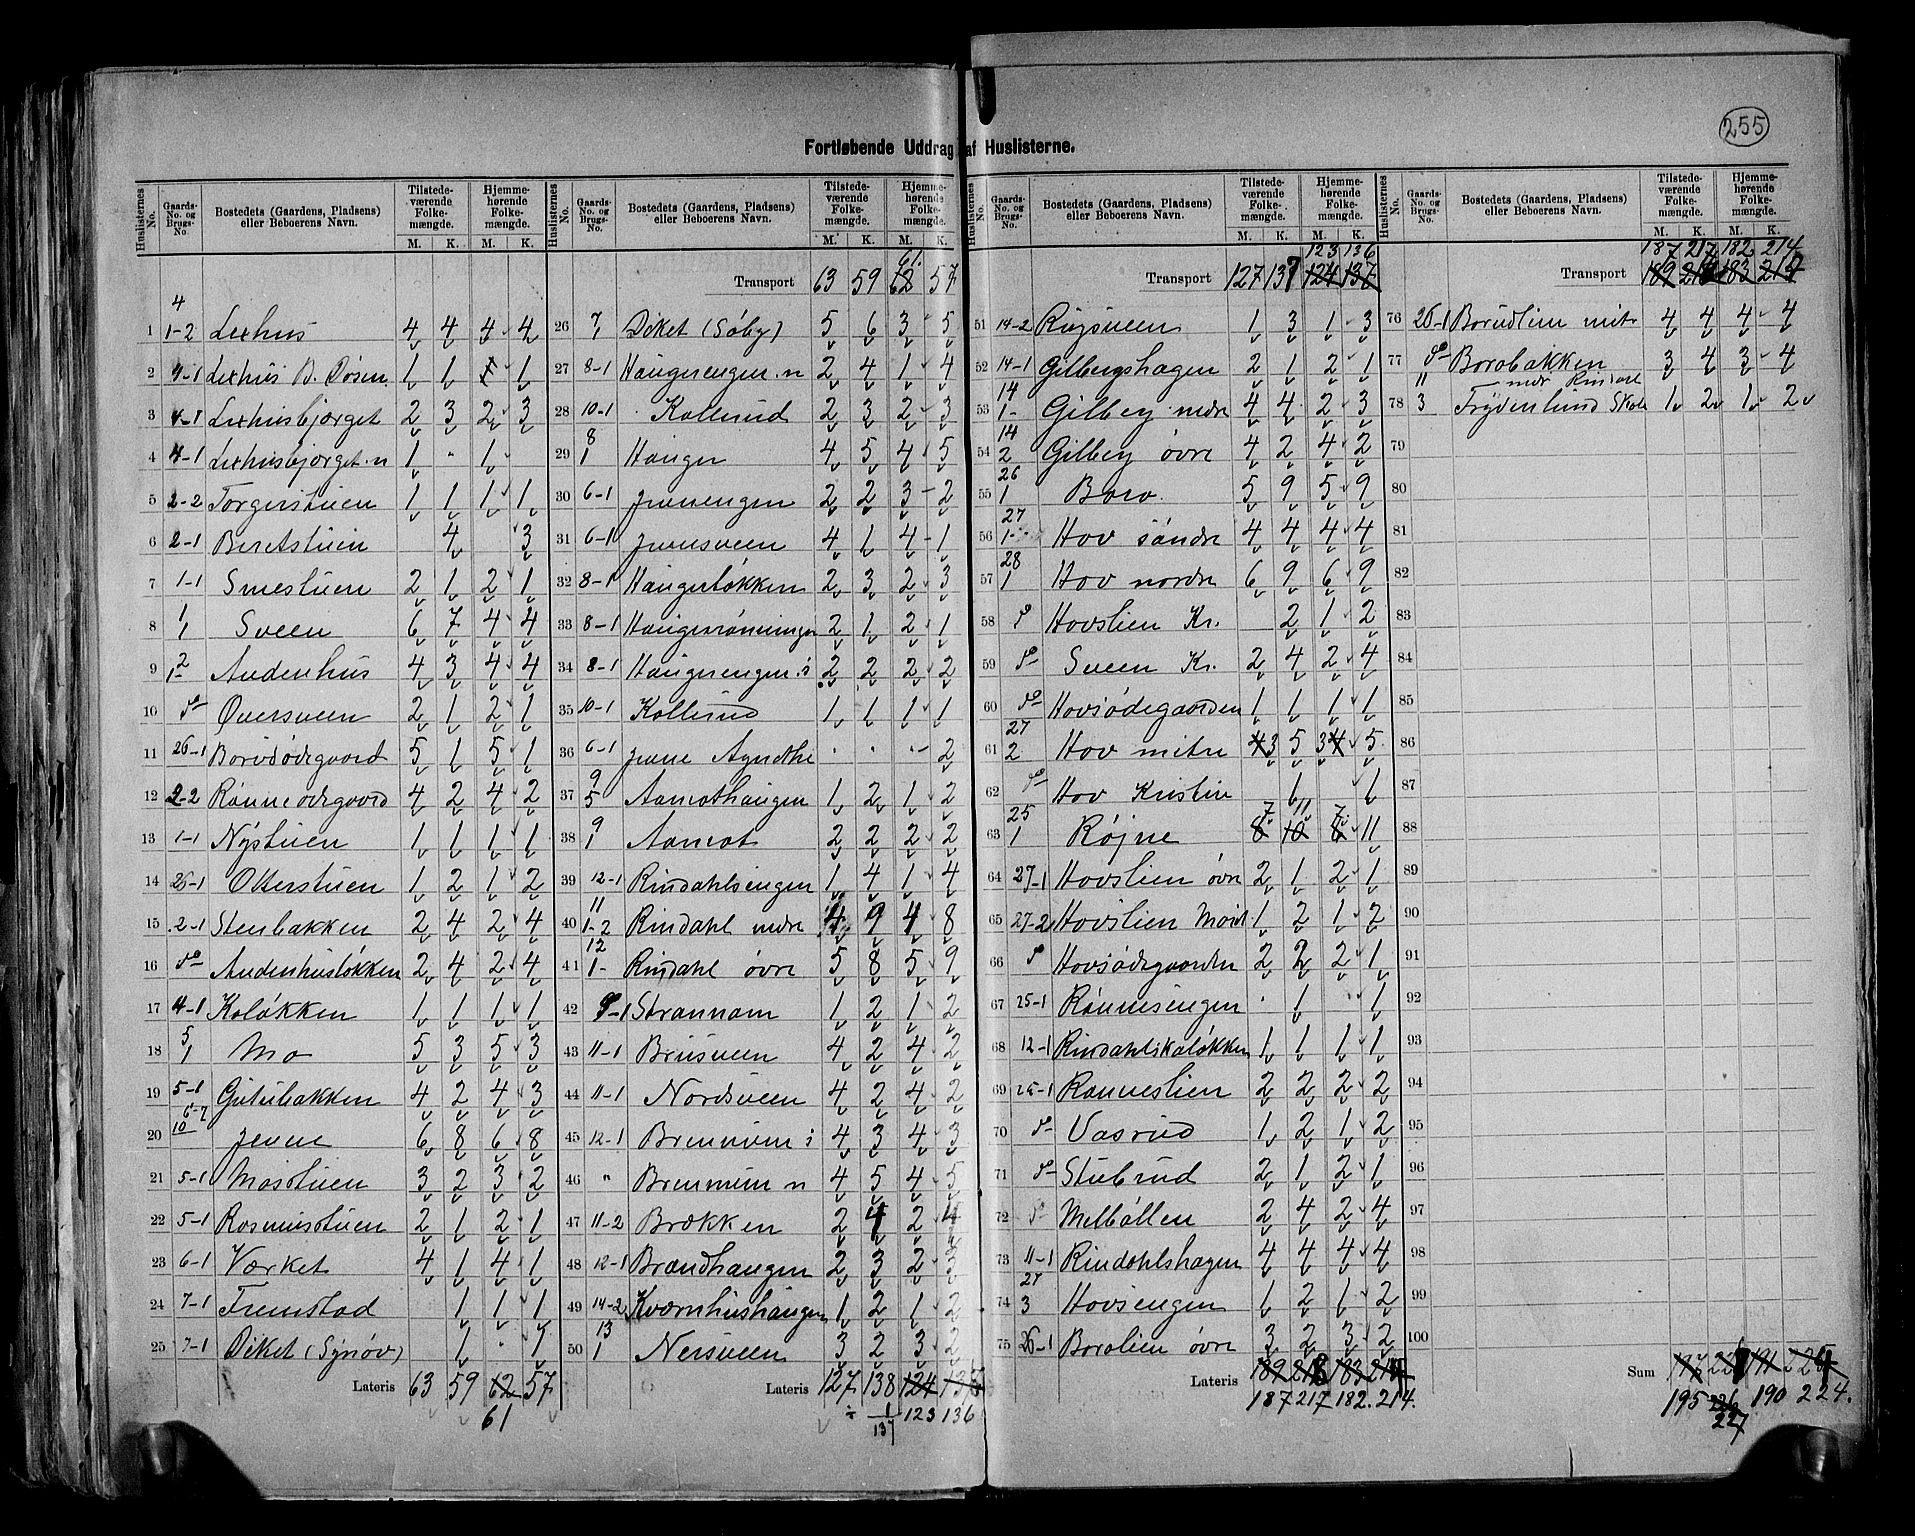 255
Fortløbende Uddrag af Huslisterne.
Huslisternes No. Gaards-No. og Brugs-No. Bostedets (Gaardens, Pladsens) eller Beboerens Navn. Tilstede-værende Folke-mængde. M. K. Hjemme-hørende Folke-mængde. M. K.
1 4 1-2 Lexhus 4 4 4 4
2 4-1 Lexhus B. Døsen 1 1 1 1
3 4-1 Lexhusbjørget 2 3 2 3
4 4-1 Lexhusbjørget n 1 - 1
5 2-2 Torgerstuen 1 1 1 1
6 2-1 Beretstuen 4 3
7 1-1 Smestuen 2 1 2 1
8 1 1 Sveen 6 7 4 4
9 2 1- Audenhus 4 3 4 4
10 do Øversveen 2 1 2 1
11 26-1 Borødegaard 5 1 5 1
12 2-2 Rønneødegaard 4 2 4 2
13 1-1 Nystuen 1 1 1 1
14 26-1 Olterstuen 1 2 1 2
15 2-1 Stenbakken 2 4 2 4
16 do Audenhusløkken 2 4 2 4
17 4-1 Koløkken 1 1 1 1
18 5 1 Mo 5 3 5 3
19 5-1 Gutubakken 4 2 4 3
20 6-7 10 Jevne 6 8 6 8
21 5-1 Mostuen 3 2 3 2
22 5-1 Rasmusstuen 2 1 2 1
23 6-1 Værket 4 1 4 1
24 7-1 Fremstad 1 1 1
25 7-1 Diket (Synøv) 1 - 1
Lateris 63 59 62 57
61
Transport 63 59 62 57
61.
26 7 1 Diket (Søby) 5 6 3 5
27 8-1 Haugerengen n 2 4 1 4
28 10-1 Kollerud 2 3 2 3
29 8 1 Hauger 4 5 4 5
30 6-1 Jevneengen 2 2 3 2
31 6-1 Jevnesveen 4 1 4 1
32 8-1 Haugerløkken 2 3 2 3
33 8-1 Haugerrønningen 2 1 2 1
34 8-1 Haugerengen s 2 2 2 2
35 10-1 Kollerud 1 1 1 1
36 6-1 Jevne Agnethe - - - 2
37 9 5 Aamothaugen 1 2 1 2
38 9 1 Aamot 2 2 2 2
39 12-1 Rindahlsengen 1 4 1 4
40 11 1-2 Rindahl nedre 4 9 4 8
41 12 1- Rindahl øvre 5 8 5 9
42 9-1 Strannam 1 2 1 2
43 11-1 Brusveen 4 2 4 2
44 11-1 Nordsveen 4 2 4 2
45 12-1 Brennum s 4 3 4 3
46 " Brennum n 4 5 4 5
47 11-2 Brækken 2 4 2 4
48 12-1 Brændhaugen 2 3 2 3
49 14-2 Kværnhushaugen 1 2 1 2
50 13 1 Nersveen 3 2 3 2
Lateris 127 138 124
÷ 1 123 136
137
123 136
Transport 127 137 124 137
51 14-2 Rugsveen 1 3 1 3
52 14-1 Gilbergshagen 2 1 2 1
53 14 1- Gilberg nedre 4 4 2 3
54 14 2 Gilberg øvre 4 2 4 2
55 26 1 Boro 5 9 5 9
56 27 1- Hov søndre 4 4 4 4
57 28 1 Hov nordre 6 9 6 9
58 do Hovslien Kr. 2 1 2
59 do Sveen Kr. 2 4 2 4
60 do Hovsødegaarden 1 1 1 1
61 27 2 Hov mitre 4 3 5 3 4 5
62 do Hov Kristin 1 1
63 25 1 Røjne 8 7 10 11 8 7 11
64 27-1 Hovslien øvre 2 1 2 1
65 27-2 Hovslien Marit 1 2 1 2
66 do Hovsødegaarden 2 2 2 1
67 25-1 Rønnesengen - 1 - 1
68 12-1 Rindahlskaløkken 1 1 1 1
69 25-1 Rønneslien 2 2 2 2
70 do Vasrud 1 2 1 2
71 do Stubrud 2 1 2 1
72 do Melbøllen 2 4 2 4
73 11-1 Rindahlshagen 4 4 4 4
74 27 3 Hovsengen 1 2 1 2
75 26-1 Borolien øvre 3 2 3 2
Lateris 189 218 183
187 217 182. 214.
187 217 182 214
Transport 189 183
76 26-1 Borudlien mit 4 4 4 4
77 do Borobakken 3 4 3 4
nedr Rindal
78 11 3 Frydenlund Skole 1 2 1 2
79
80
81
82
83
84
85
86
87
88
89
90
91
92
93
94
95
96
97
98
99
100
Sum 191
195 226 190 224.
227